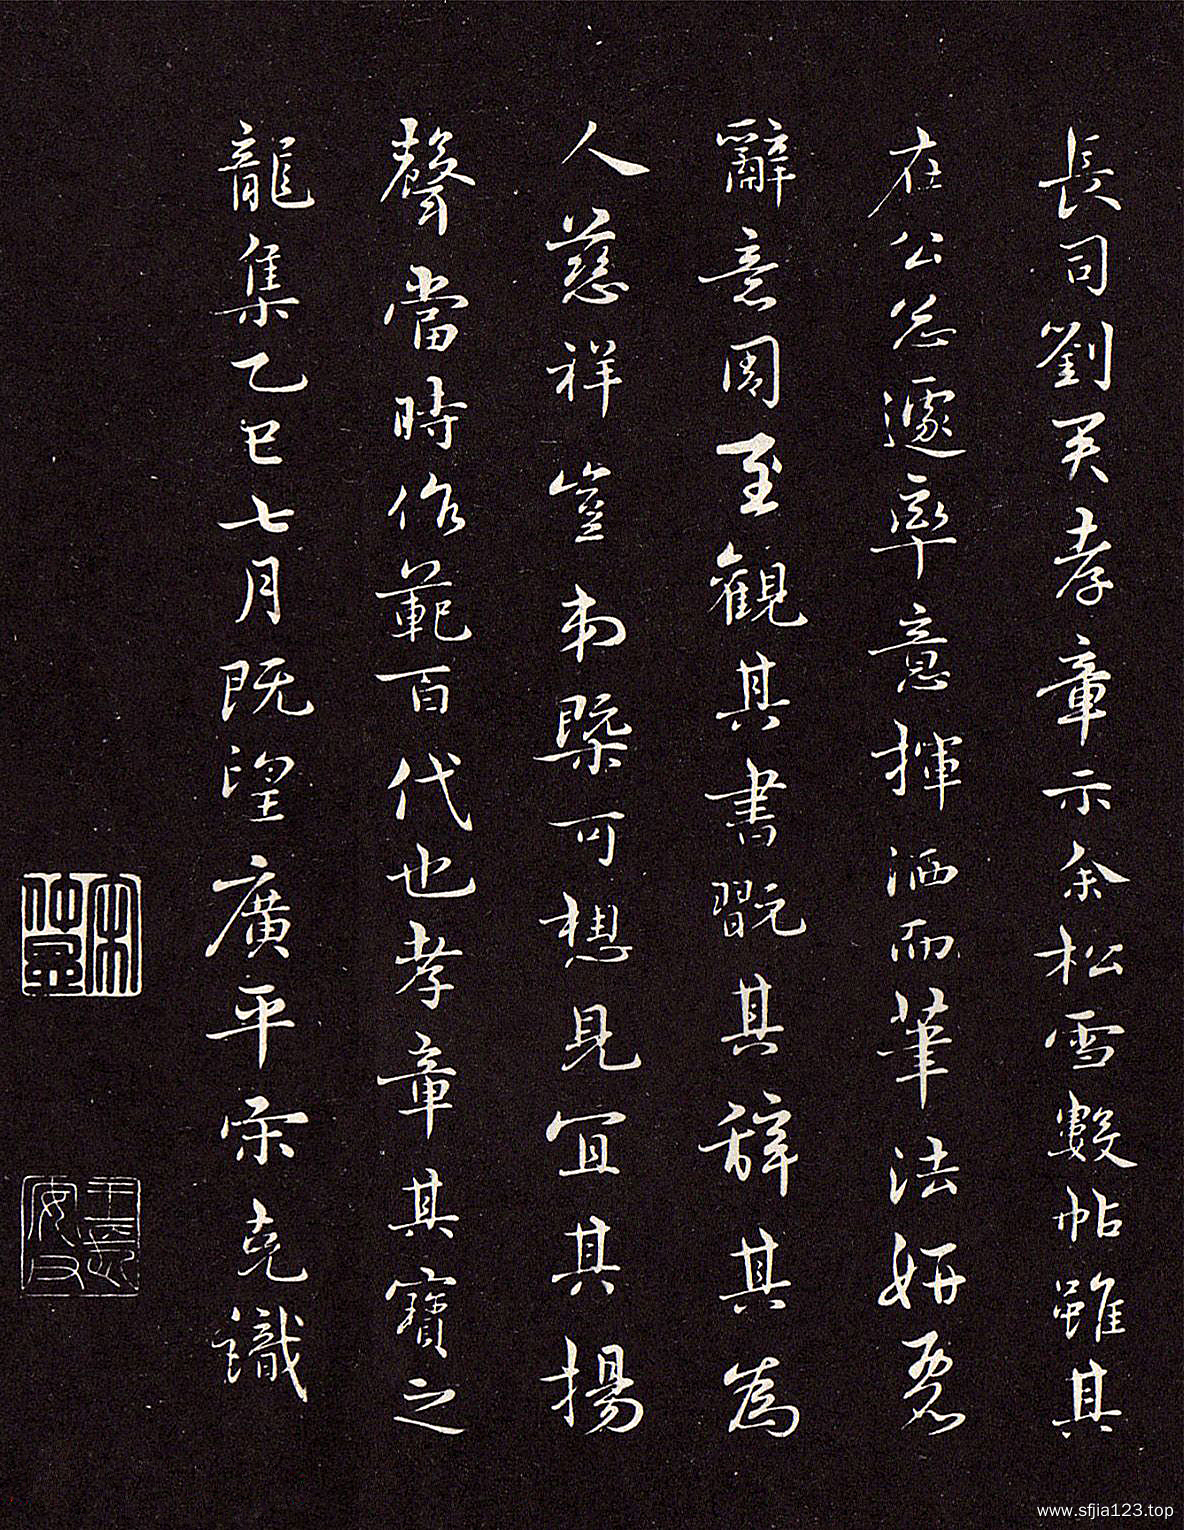 長司劉君孝章示余松雪數帖雖其
在公怱遽率意揮洒而筆法妍麗
辭意周至觀其書翫其辞其為
人慈祥豈弟槩可想見宜其揚
聲當時作範百代也孝章其寶之
龍集乙巳七月既望廣平宋克識
www.sfjia123.top